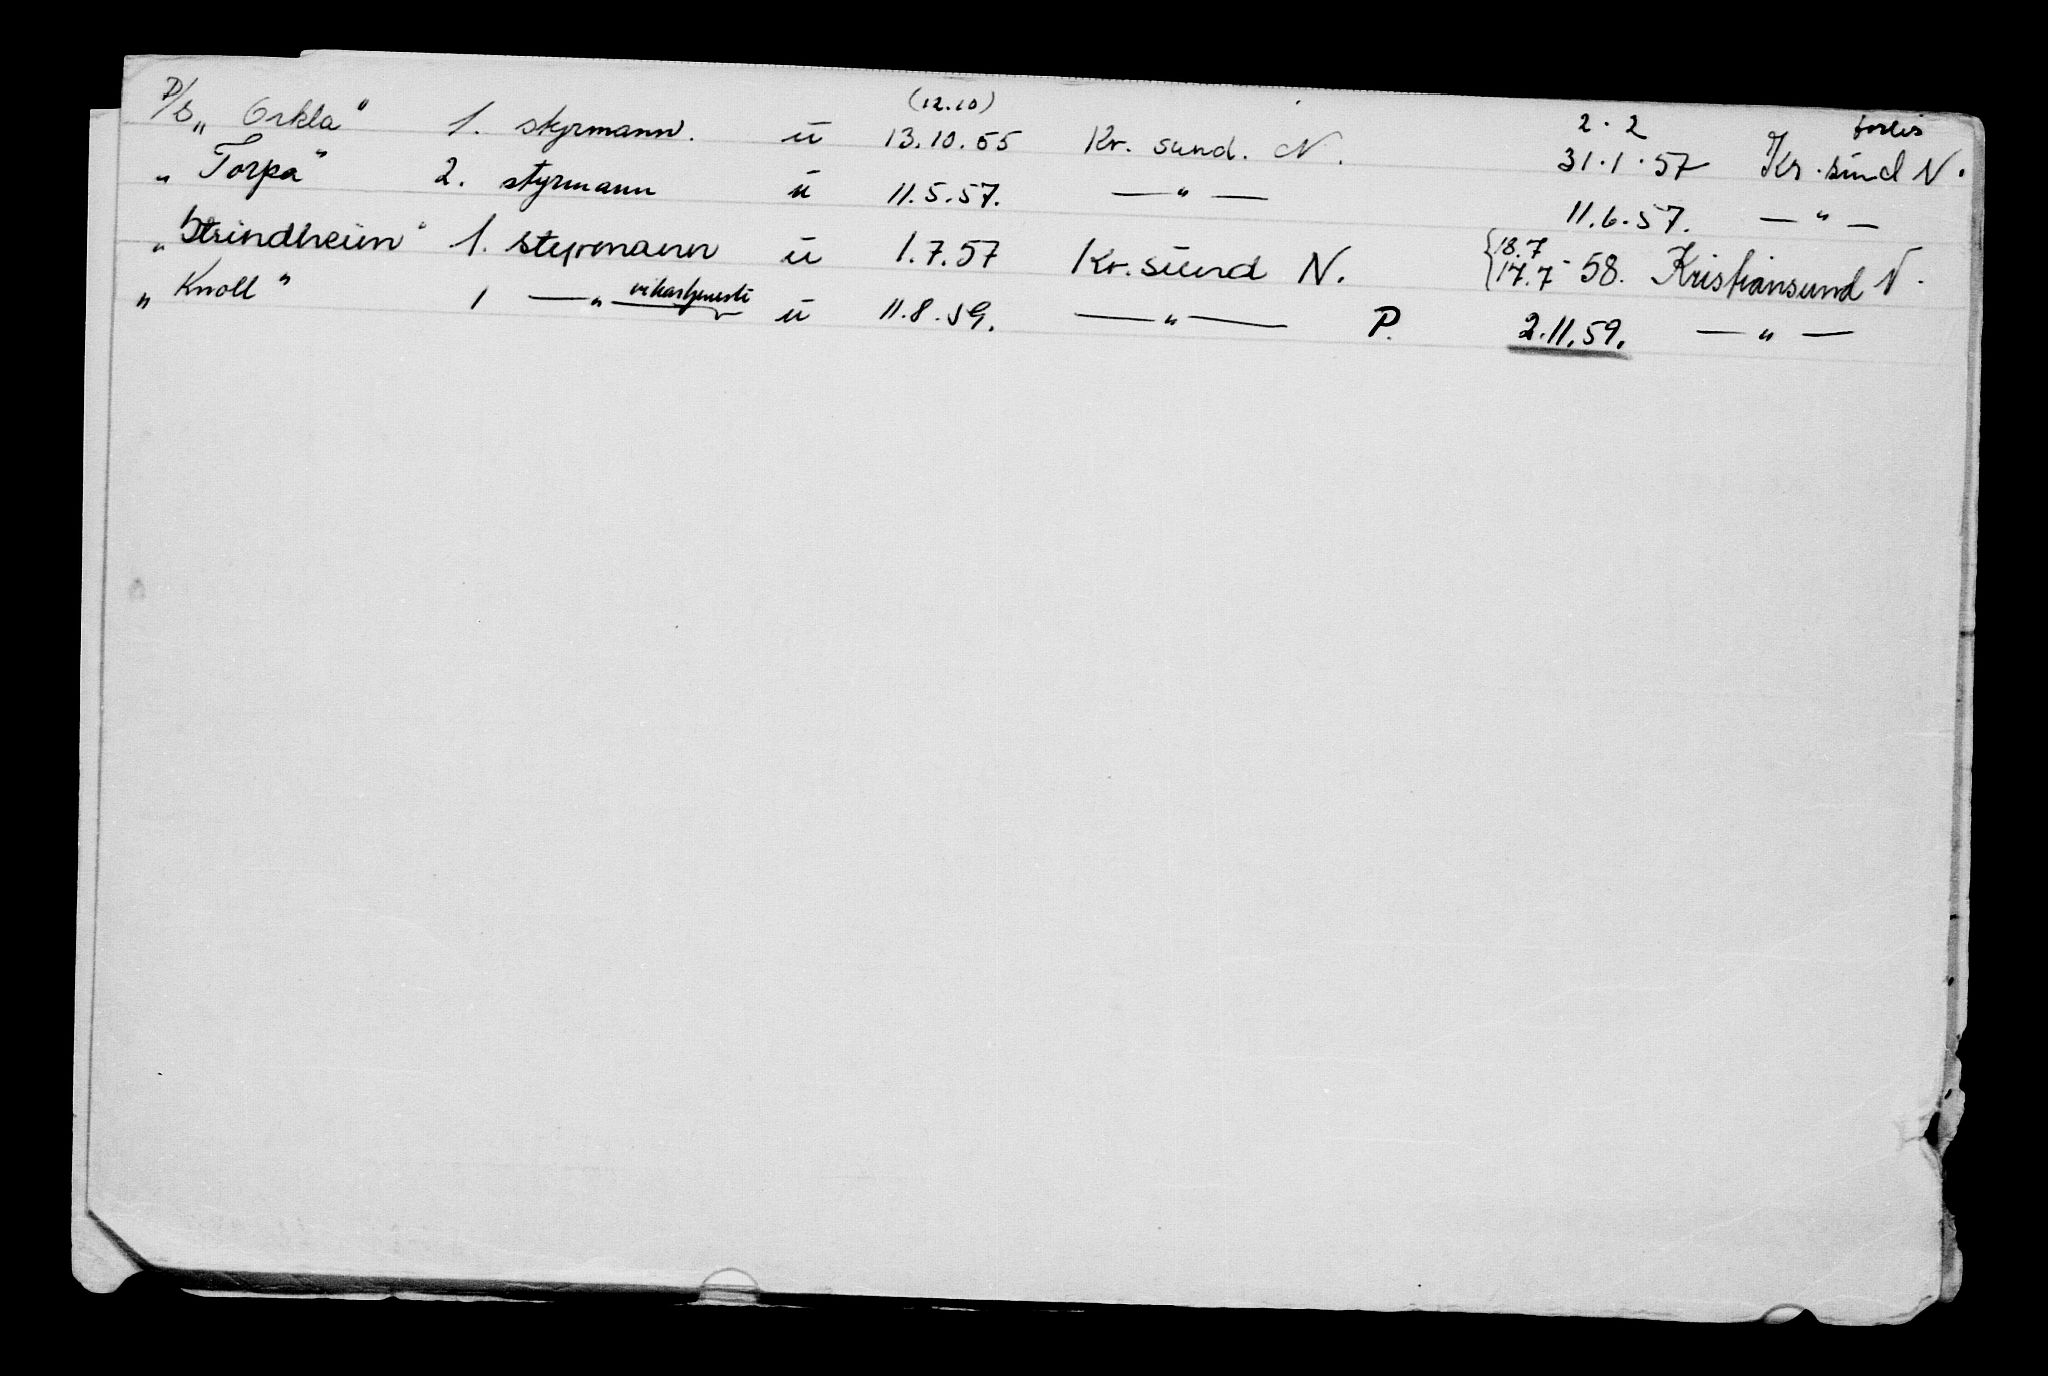 (12.10) 2.2 forlis
D/S „Orkla" 1. styrmann. u 13.10.55 Kr.sund. N. 31.1.57 Kr.sund N.
„Torpa" 2. styrmann u 11.5.57. —„— 11.6.57. —„—
„Strindheim" 1. styrmann u 1.7.57 Kr.sund N. {18.7 17.7-58. Kristiansund N.
„Knoll" 1 —„— vikartjeneste u 11.8.59. —„— P. 2.11.59. —„—